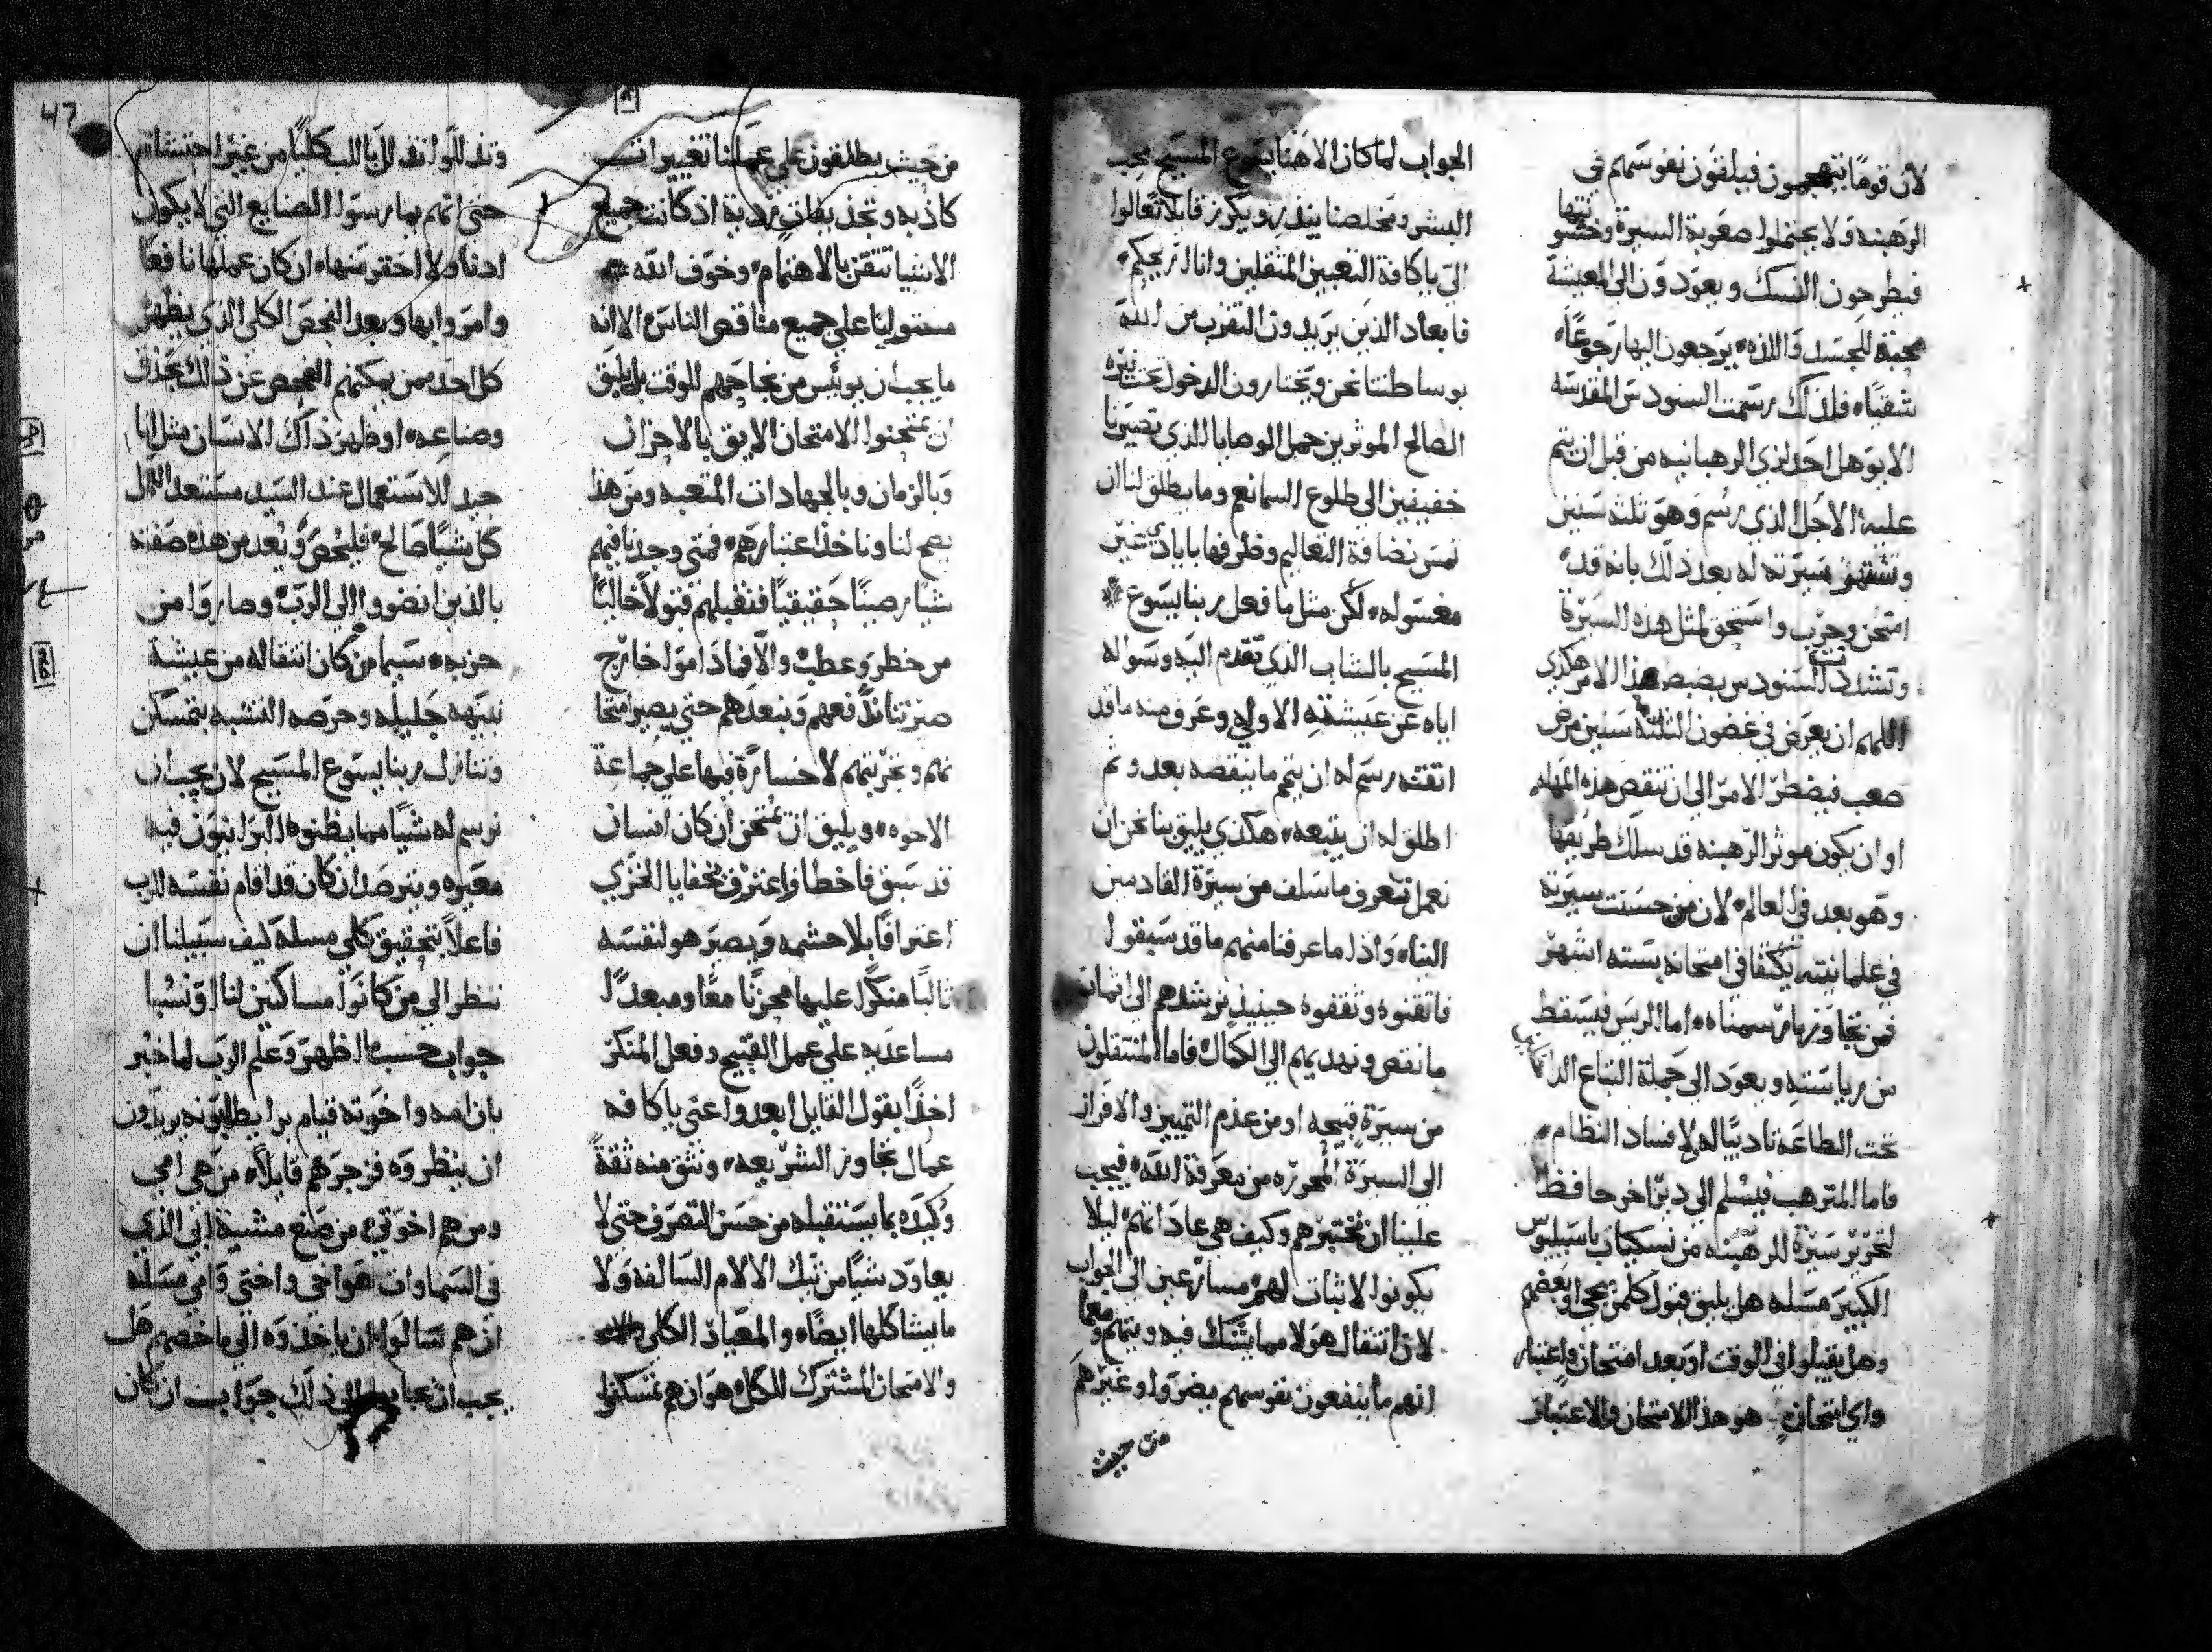 لان قومًا يتهجمون فيلقون نفوسهم في
الرهبنه ولا يحتملوا صعوبة السيرة وخشونتها
فيطرحون النسك ويعودون الى المعيشة
محبة للجسد واللذه يرجعون اليها رجوعًا
شقيًا فلذلك رسمت السنودس المقدسه
الا يوهل احد لزي الرهبانيه من قبل ان يتم
عليه الاجل الذي رسم وهو ثلثه سنين
سيرته له بعد ذلك بانه قد
امتحن وجرب واستحق لمثل هذه السيرة
وتشدد السنودس بضبط هذا الامر هكذي
اللهم ان يعرض في غضون الثلثه سنين مرض
صعب فيضطر الامر الى ان تنقص هذه المهله
او ان يكون موثر الرهبنه قد سلك طريقها
وهو بعد في العالم لان من حسنت سيرته
في علمانيته يكتفا في امتحانه بسته اشهر
فمن تجاوز ما رسمناه اما الريس فيسقط
من رياسته ويعود الى جملة التباع
تحت الطاعة تاديبًا له لافساد النظام
فاما المترهب فيسلم الى دير اخر حافظ
لتحرير سيرة الرهبنه من نسكيات باسيليوس
الكبير مسله هل يليق قبول كلمن يجي او بعضهم
وهل يقبلوا في الوقت او بعد امتحان واعتبار
واي امتحان هو هذا الامتحان والاعتبار
الجواب لما كان الاهنا يسوع المسيح محب
البشر ومخلصنا ينذر ويكرز قايلا تعالوا
الي ياكافة التعبين المثقلين وانا اريحكم
فابعاد الذين يريدون التقرب من الله
بوساطتنا نحن ويختارون الدخول تحت نيره
الصالح الموثرين حمل الوصايا الذي تصيرنا
خفيفين الى طلوع السما نعم وما يطلق لنا ان
نمس نضافة التعاليم وظرفها بايادي غير
مغسوله لكن مثل ما فعل ربنا يسوع
المسيح بالشاب الذي تقدم اليه وسواله
اياه عن عيشته الاولى وعرف منه ما قد
اتقنه رسم له ان يتمم ما ينقصه بعد وثم
اطلق له ان يتبعه هكذي يليق بنا نحن ان
نعمل نتعرف ما سلف من سيرة القادمين
الينا واذا ما عرفنا منهم ما قد سبقوا
فاتقنوه وثقفوه حينيذ نرشدهم الى اتمام
ما نقص ونهديهم الى الكمال فاما المنتقلون
من سيرة قبيحه او من عدم التمييز والافراز
الى السيرة المحرره من معرفة الله فيجب
علينا ان نختبرهم وكيف هي عاداتهم ليلا
يكونوا لا ثبات لهم مسارعين الى الجواب
لان انتقال هولا مما يشك فيه ويتهم ومعا
انهم ما ينفعون نفوسهم يضروا وغيرهم
من حيث
47
من حيث يطلقون على عملنا تعييرات
كاذبه وتجذيفات رديه اذ كانت جميع
الاشيا تتقن بالاهتمام وخوف الله
مستوليًا على جميع مناقص الناس الا انه
ما يجب ان يويس من نجاحهم للوقت بل يليق
ان يمتحنوا الامتحان الايق بالاحزان
وبالزمان وبالجهادات المتعبه ومن هذا
يصح لنا وناخذ اعتبارهم فمتى وجدنا فيهم
شيا رصينًا حقيقيًا فنقبلهم قبولا خاليًا
من خطر وعطب والا فما داموا خارج
منزلنا ندفعهم ونبعدهم حتى يصير امتحا
نهم وتجربتهم لا خسارة فيها على جماعة
الاخوه ويليق ان نمتحن ان كان انسان
قد سبق فاخطا فاعترف بخفايا الخزي
اعترافًا بلا حشمه ويصر هو لنفسه
ثالبًا منكرًا عليها محزنًا معًا ومبعدًا
مساعديه على عمل القبيح وفعل المنكر
اخذًا بقول القايل ابعدوا عني ياكافه
عمال تجاوز الشريعه ونثق منه ثقة
وكيده بما يستقبله من حسن التصرف حتى لا
يعاود شيًا من تلك الالام السالفه ولا
ما يشاكلها ايضًا والمعيار الكلي
والامتحان المشترك للكل هو ان هم تمسكنوا
وتذللوا تذلل بالب كليًا من غير احتشام
حتى انهم يمارسوا الصنايع التي لا يكون
ادنا ولا احقر منها ان كان عملها نافعًا
وامروا بها وبعد الفحص الكلي الذي يظهر
كل احد ممن يمكنهم الفحص عن ذلك بحذق
وصناعه او ظهر ذاك الانسان مثل انا
جيد للاستعمال عند السيد مستعد لكل
كل شيًا صالح فليحص ويعد من هذه صفته
بالذين انضووا الى الرب وصاروا من
حزبه سيما من كان انتقاله من عيشة
نبيهه جليله وحرصه التشبه بتمسكن
وتنازل ربنا يسوع المسيح لان يجب ان
نرسم له شيًا مما يظنوه البرانيون فيه
معيره ويترصد ان كان قد اقام نفسه للرب
فاعلاً بتحقيق كلي مسله كيف سبيلنا ان
ننظر الى من كانوا مساكنين لنا او نسبا
جواب حسب ما اظهر وعلم الرب لما خبر
بان امه واخوته قيام برا يطلبونه يريدون
ان ينظروه فزجرهم قايلاً من هي امي
ومن هم اخوتي من صنع مشية ابي الذي
في السماوات هو اخي واختي وامي مسله
ان هم سالوا ان ياخذوه الى ما خصهم هل
يجب ان الى ذلك جواب ان كان